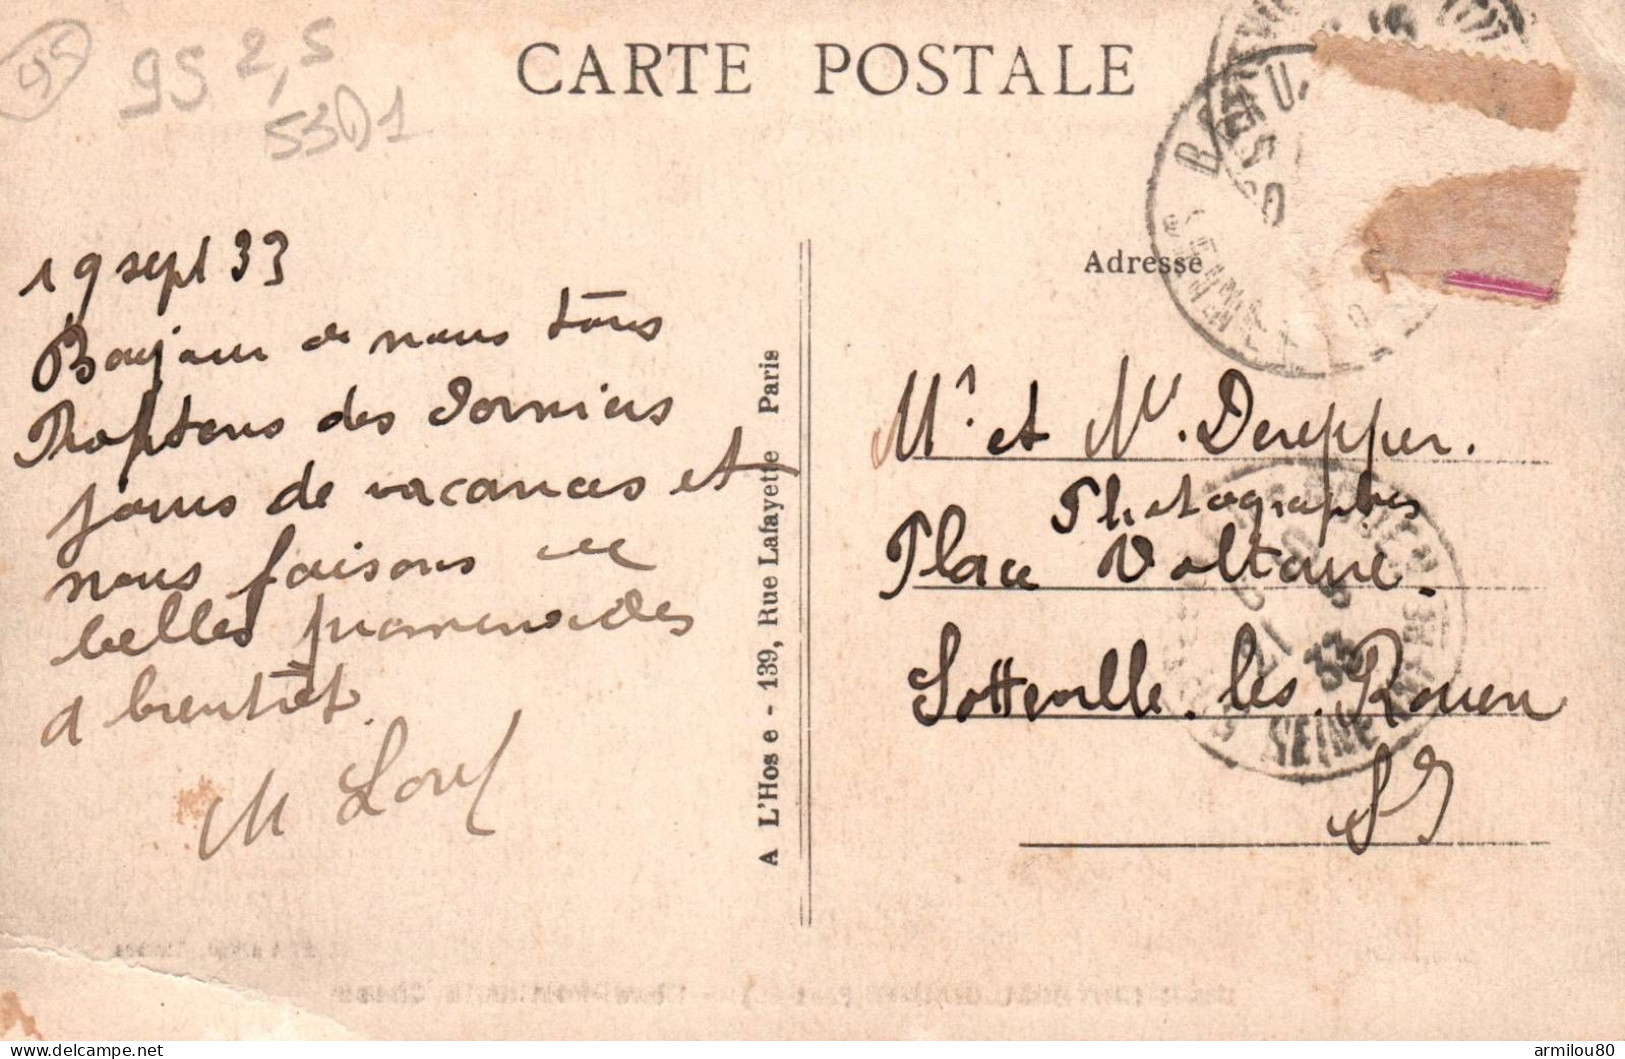 95
95 2,5
5301
CARTE POSTALE
Adresse
19 sept 33
Bonjour de nous tous
Profitons des derniers
jours de vacances et
nous faisons de
belles promenades
a bientôt.
M
A L'Hoste - 139, Rue Lafayette Paris
Mr et Me Derepper.
Photographes
Place Voltaire.
Sotteville. les. Rouen
SI
21
33
SEINE
armilou80